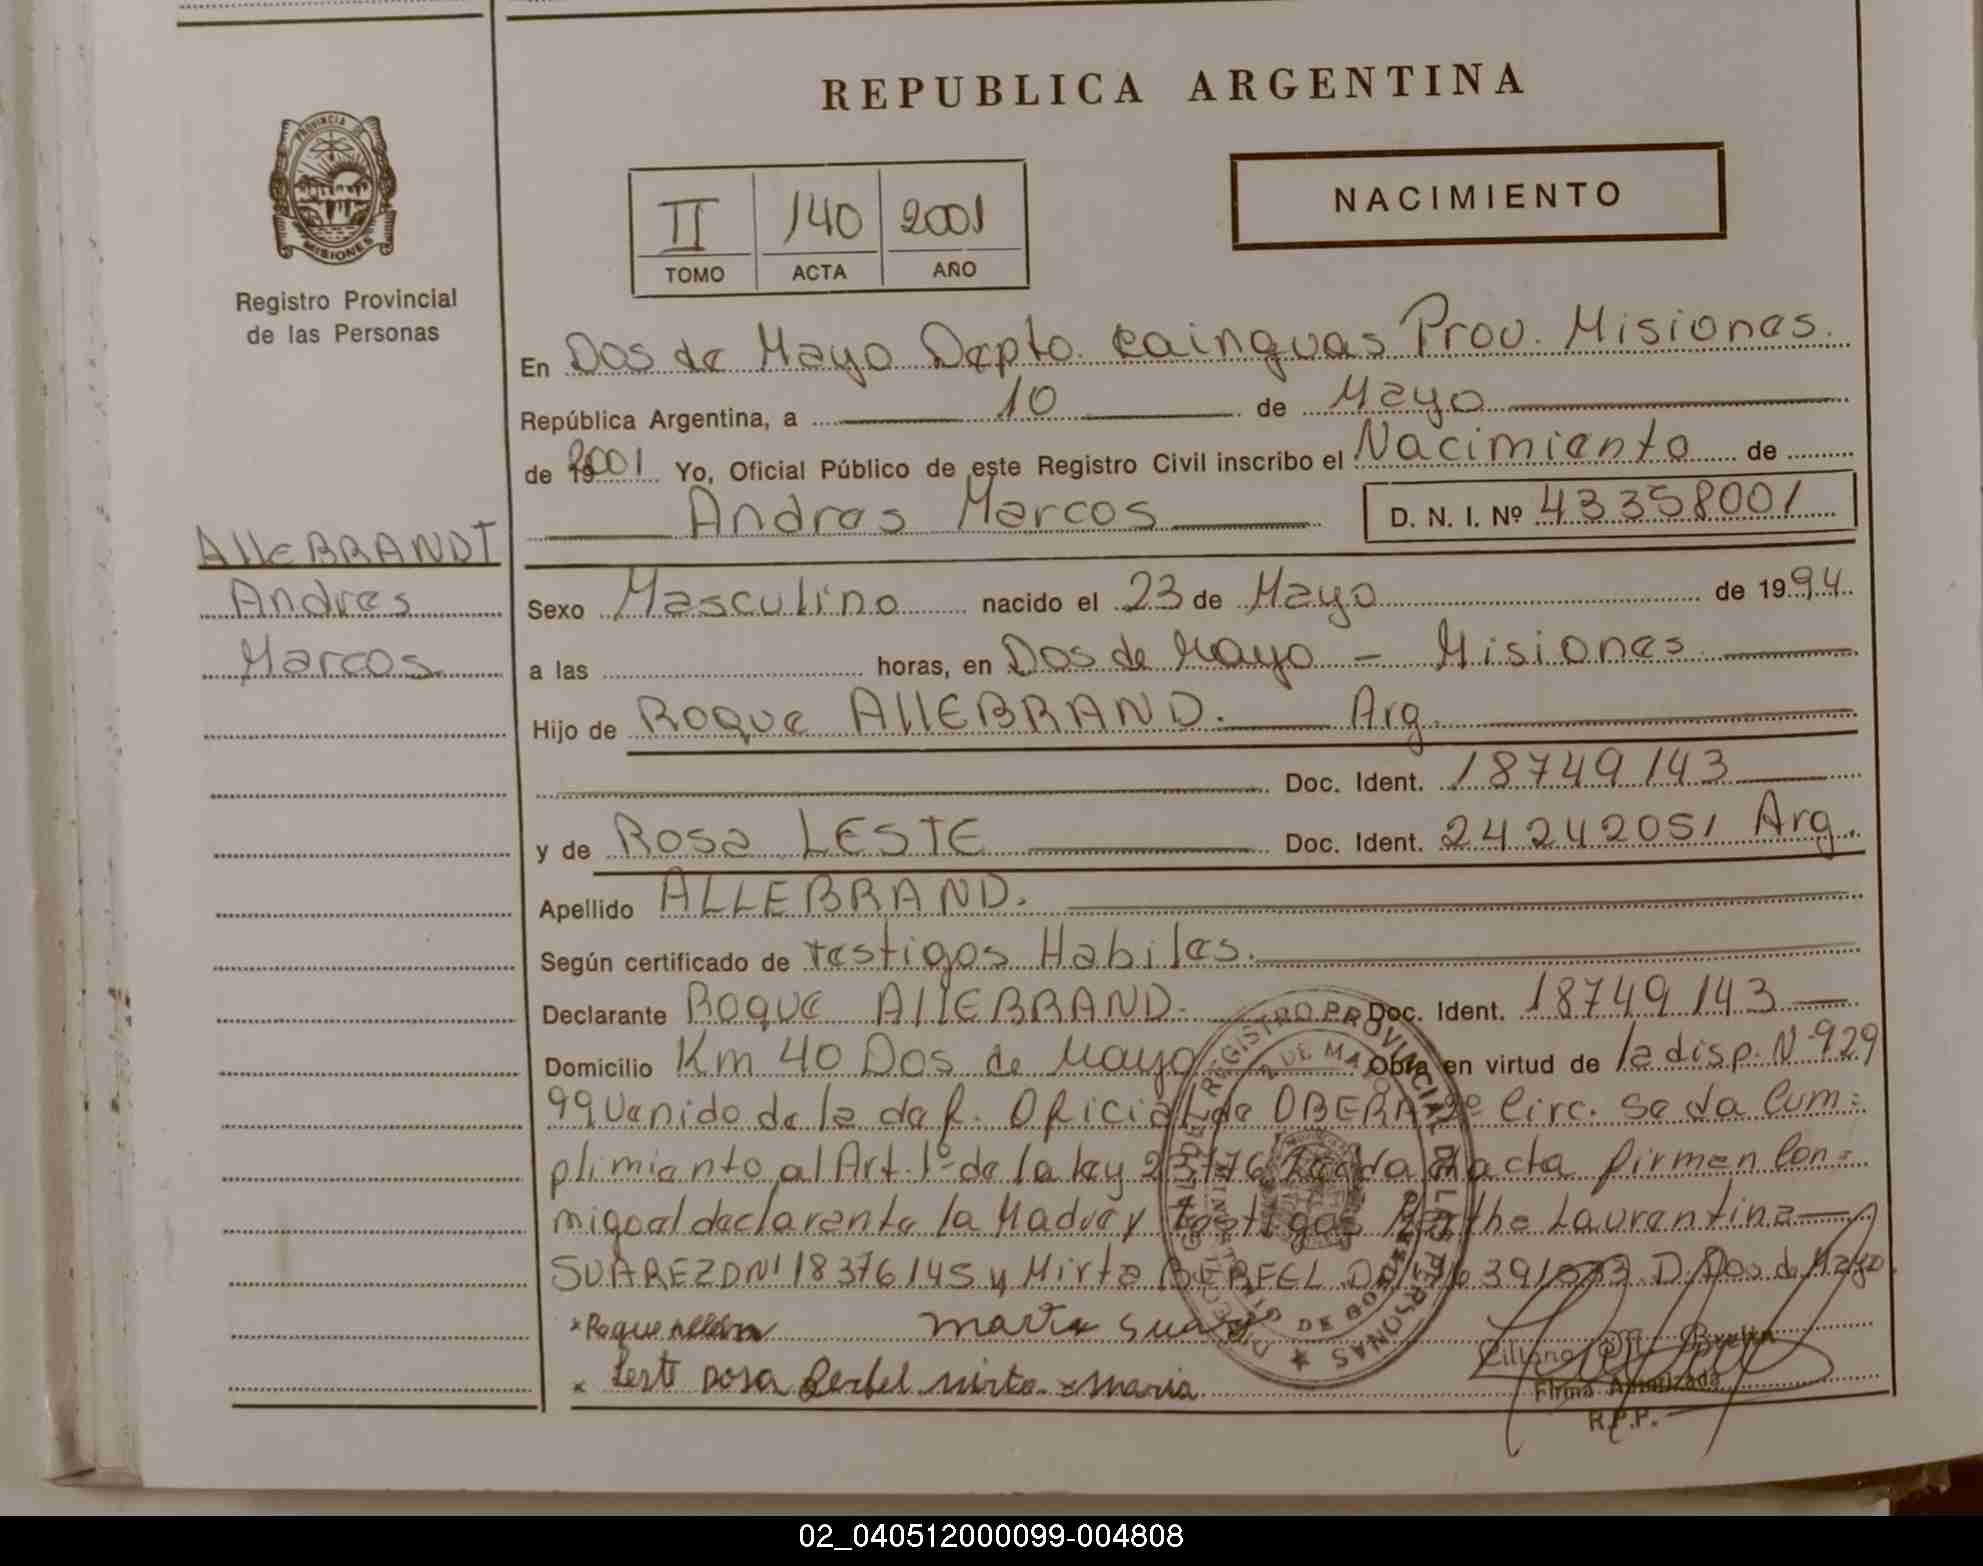 REPUBLICA ARGENTINA
PROVINCIA DE
MISIONES
Registro Provincial
de las Personas
II 140 2001
TOMO ACTA AÑO
NACIMIENTO
En Dos de Mayo Depto. Cainguas Prov. Misiones.
República Argentina, a 10 de Mayo
de 2001 Yo, Oficial Público de este Registro Civil inscribo el Nacimiento de
Andres Marcos D. N. I. Nº 43358001
AllEBRANDT
Andres
Marcos
Sexo Masculino nacido el 23 de Mayo de 1994
a las horas, en Dos de Mayo - Misiones
Hijo de Roque AllEBRAND. Arg.
Doc. Ident. 18749143
y de Rosa LESTE Doc. Ident. 24242051 Arg.
Apellido ALLEBRAND.
Según certificado de testigos Habiles.
Declarante Roque AllEBRAND. Doc. Ident. 18749143
Domicilio Km 40 Dos de Mayo Obra en virtud de la disp. Nº 929
99 venido de la def. Oficial de OBERA 2º Circ. se da Cum=
plimiento al Art. 1º de la ley 23776 acta firmen Con=
migo al declarante la Madre y testigos Laurentina
SUAREZ DNI 18376145 y Mirta D. Dos de Mayo
* Roque
* Leste Rosa Mirta * Maria
Firma Autorizada
R.P.P.
REGISTRO PROVINCIAL DE LAS PERSONAS
2 DE MAYO
02_040512000099-004808